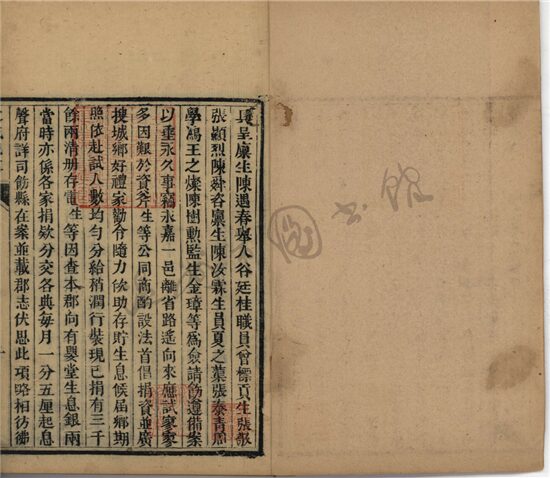 具呈廩生陳遇春舉人谷廷桂職員曾標貢生張
張顯烈陳舜咨廩生陳汝霖生員夏之葉張泰青
學馮王之燦陳樹勲監生金璋等爲僉請飭遵備案
以垂永久事竊永嘉一邑離省路遥向來應試寒家
多因艱於資斧生等公同商酌設法首倡捐資並廣
搜城鄉好禮家勸令隨力依助存貯生息候屆鄉期
照依赴試人數均勻分給稍潤行裝現已捐有三千
餘兩清册存電生等因查本郡向有嬰堂生息銀兩
當時亦係各家捐欵分交各典每月一分五厘起息
聲府詳司飭縣在案並載郡志伏思此項略相彷彿